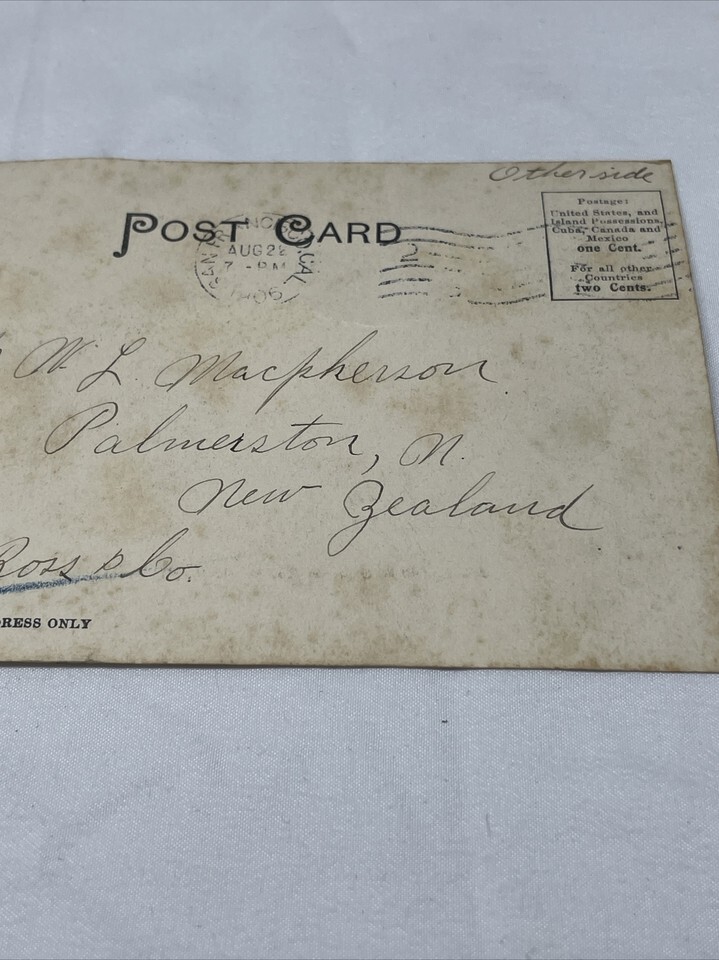 Other side
POST CARD
SAN FRANCISCO, CAL.
AUG 28
7 - PM
1906
2
Postage:
United States, and
Island Possessions,
Cuba, Canada and
Mexico
one Cent.
For all other
Countries
two Cents.
W. L. Macpherson
Palmerston, N.
New Zealand
Ross & Co.
RESS ONLY